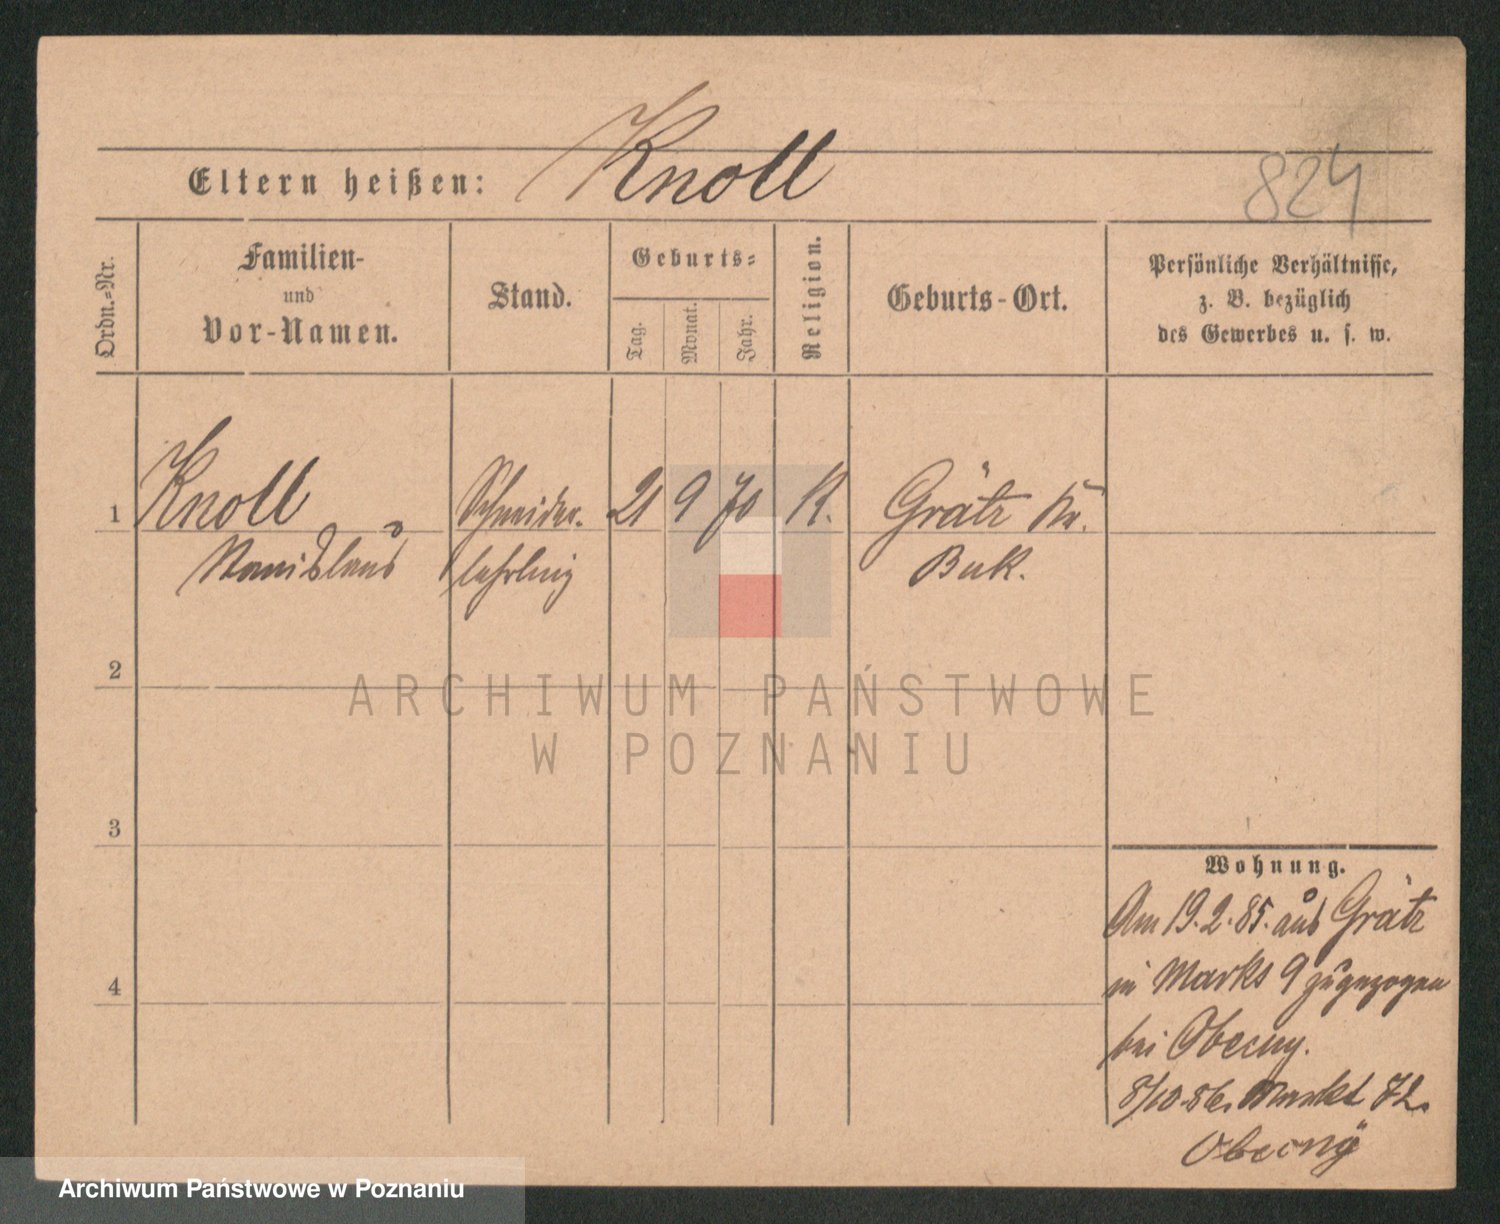 Eltern heißen: Knoll
824
Ordn.=Nr.
Familien-
und
Vor-Namen.
Stand.
Geburts=
Tag.
Monat.
Jahr.
Religion.
Geburts-Ort.
Persönliche Verhältnisse,
z. B. bezüglich
des Gewerbes u. s. w.
1 Knoll Schneider- 21 9 70 K. Grätz Kr.
Stanislaus lehrling Buk.
2
ARCHIWUM PAŃSTWOWE
W POZNANIU
3
Wohnung.
Am 19.2.85. aus Grätz
in Markt 9 zugezogen
bei Obecny.
8/10.86. Markt 72.
Obecny
4
Archiwum Państwowe w Poznaniu